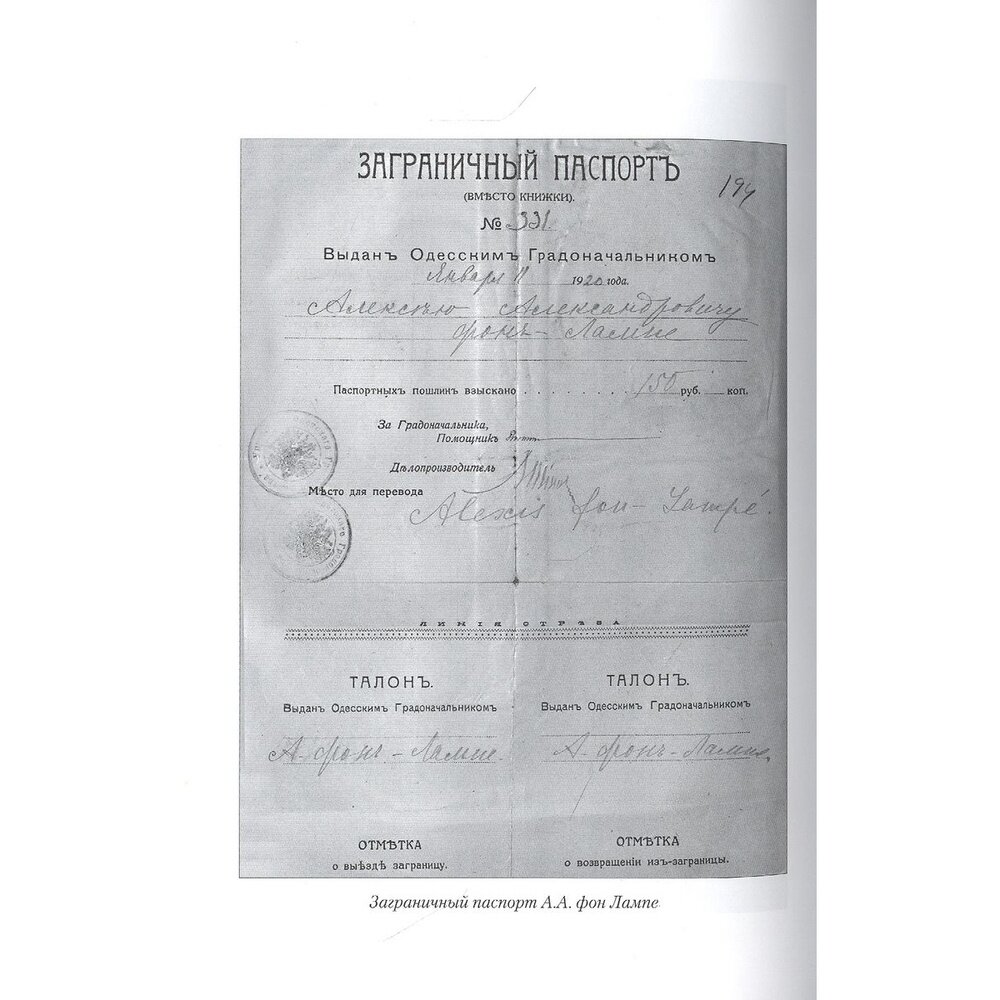 ЗАГРАНИЧНЫЙ ПАСПОРТЪ
194
(ВМѢСТО КНИЖКИ).
№ 331.
Выданъ Одесскимъ Градоначальникомъ
Января 11 1920 года.
Алексѣю Александровичу
фонъ-Лампе
Паспортныхъ пошлинъ взыскано . . . . . . . . 150 руб. коп.
За Градоначальника,
Помощникъ
Дѣлопроизводитель
Мѣсто для перевода
Alexis fon-Lampé.
ЛИНІЯ ОТРѢЗА
ТАЛОНЪ.
Выданъ Одесскимъ Градоначальникомъ
А. фонъ-Лампе.
ОТМѢТКА
о выѣздѣ заграницу.
ТАЛОНЪ.
Выданъ Одесскимъ Градоначальникомъ
А. фонъ-Лампе.
ОТМѢТКА
о возвращеніи изъ-заграницы.
Заграничный паспорт А.А. фон Лампе